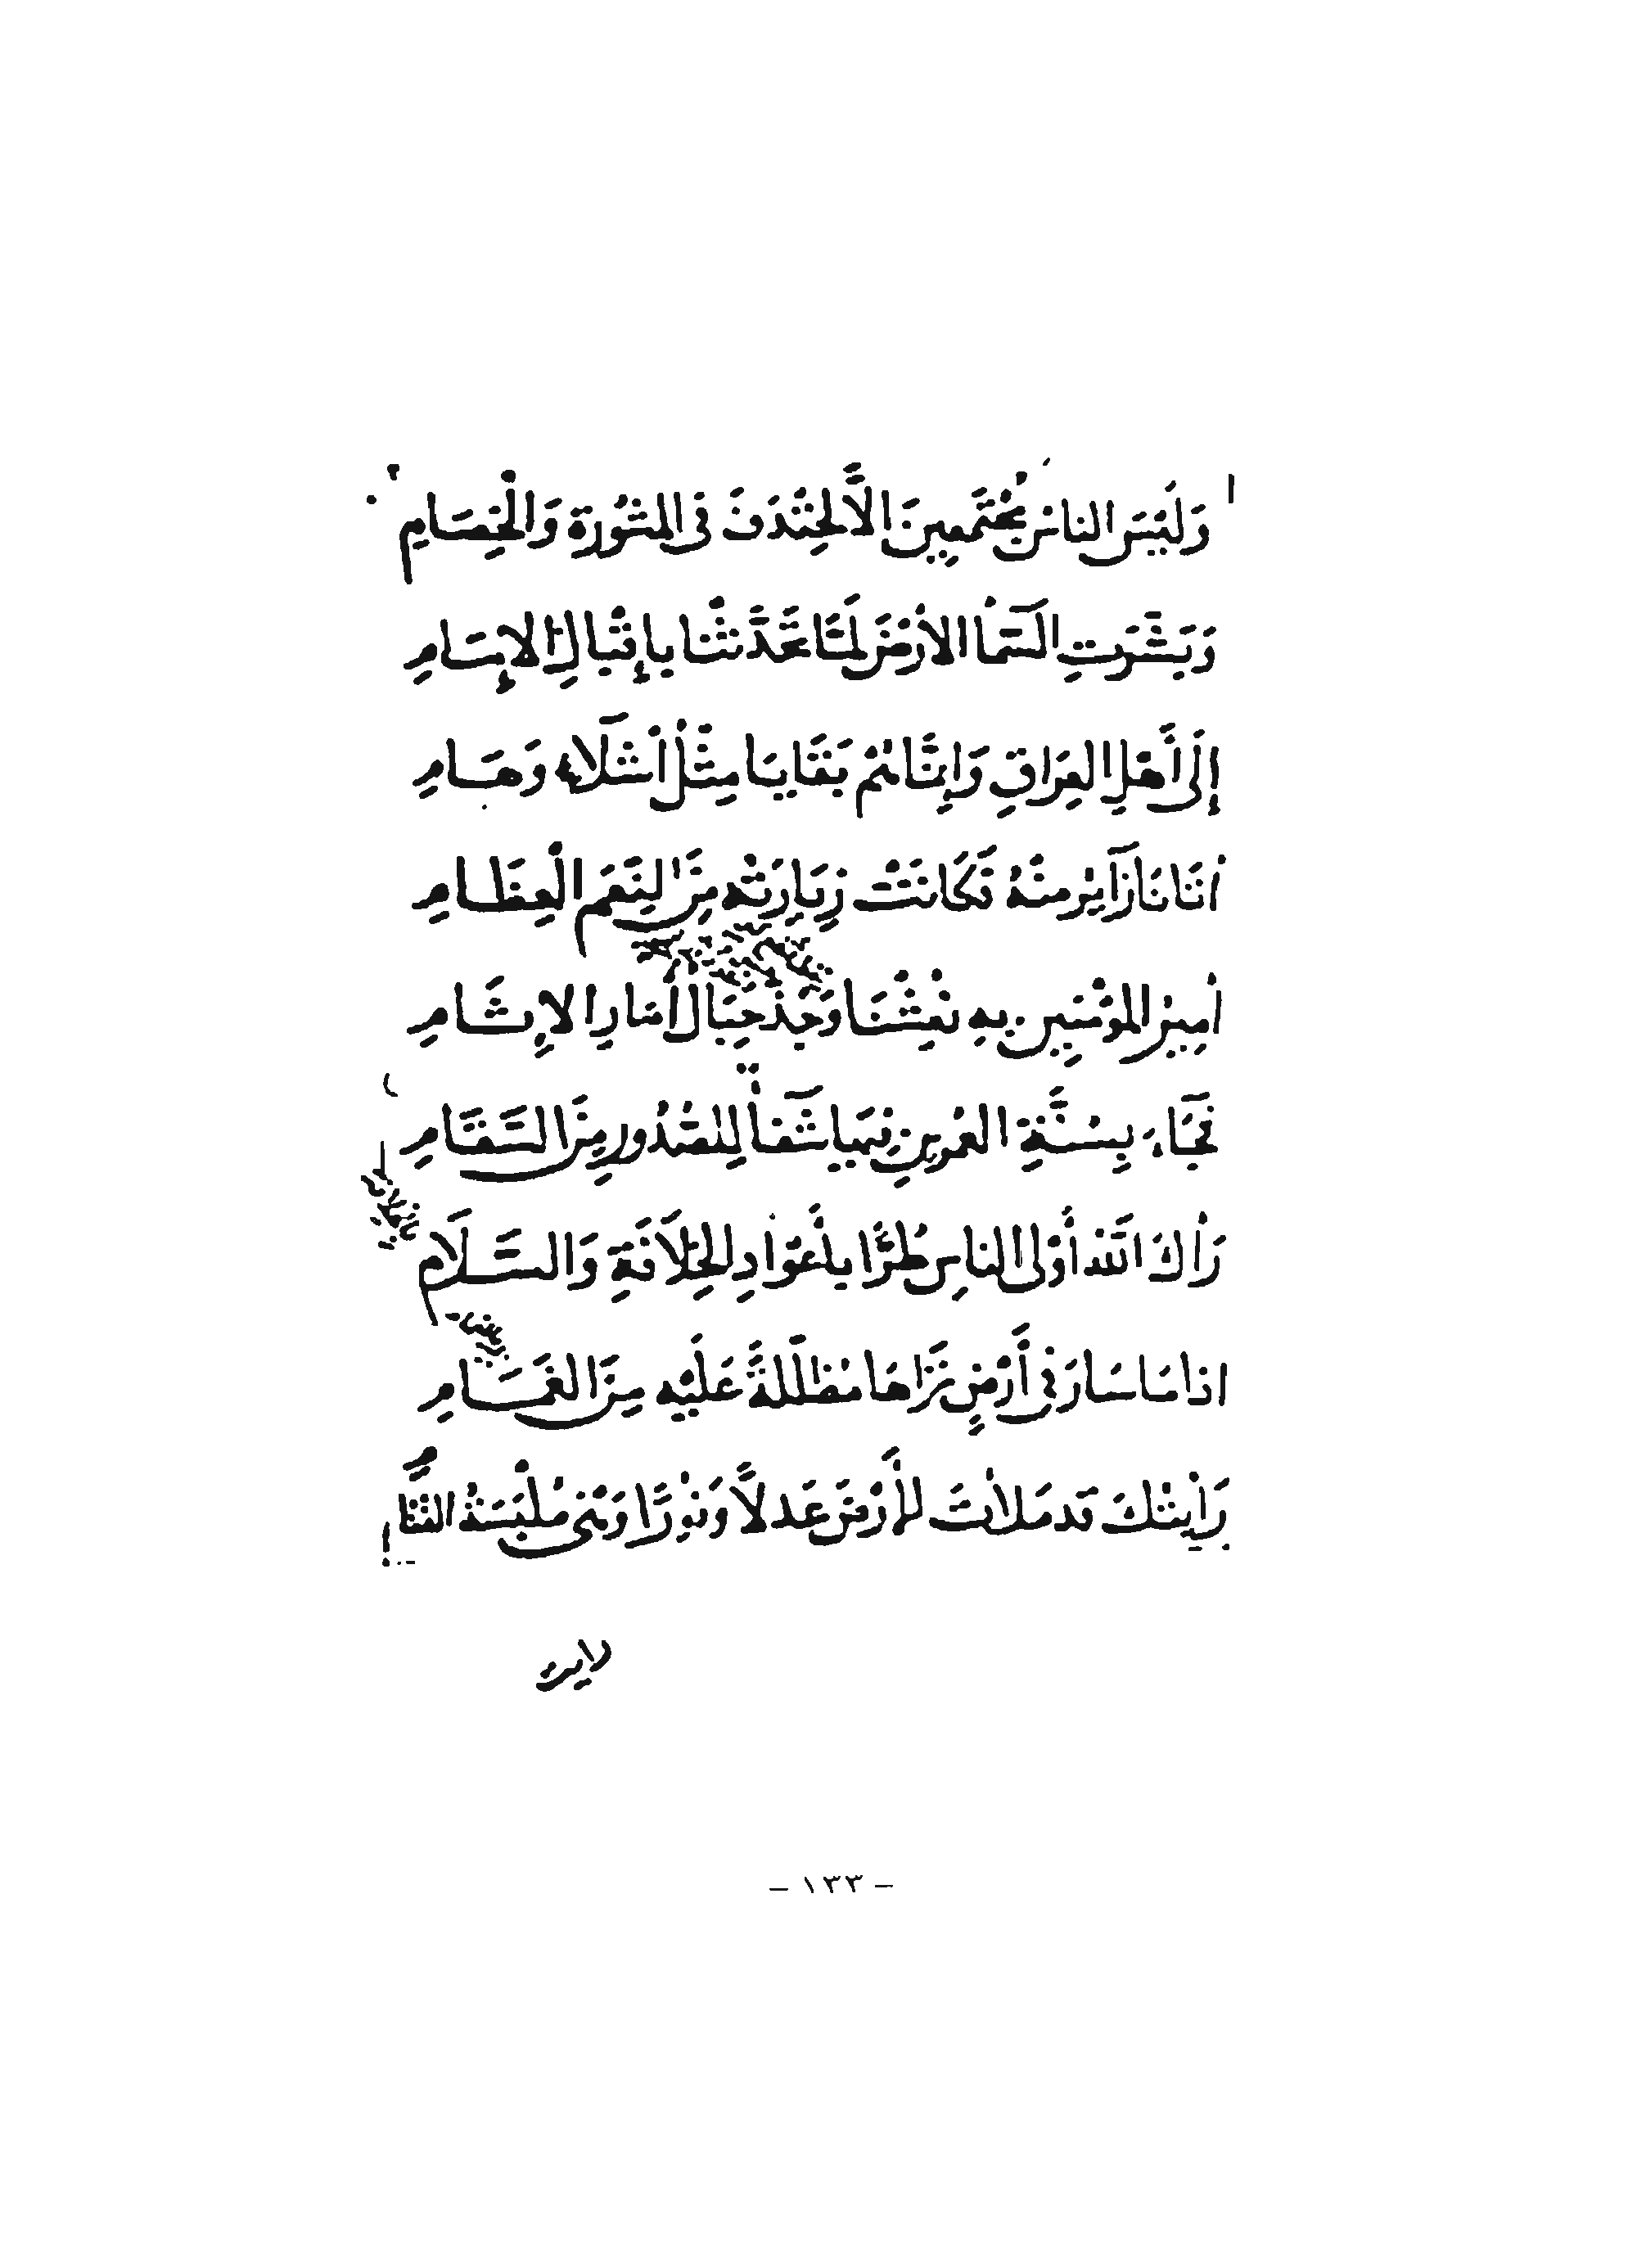 وَلَيْسَ النَاسُ مُجْتَمِعِينَ الَّا لِخِنْدَفَ فِى المَشُورَةِ وَالْخِصَامِ
وَبَشَّرَتِ السَّمآءُ الارْضَ لَمَّا تَحَدَّثْنَا بِإِقْبَالِ الإِمَامِ
إِلَى أَهْلِ العِرَاقِ وَإِنَّمَا هُمْ بَقَايَا مِثْلُ أَشْلَآءٍ وَهَامِ
اتَانَا زَآئِرٌ مِنْهُ فَكَانَتْ زِيَارَتُهُ مِنَ النِعَمِ الْعِظَامِ
امِيرُ المُؤمِنِينَ بِهِ نُعِشْنَا وَجُذَّ حِبَالُ آصَارِ الإِثَامِ
فَجَآءَ بِسُنَّةِ العُمَرينِ فِيهَا شَفآءٌ لِلصُّدُورِ مِنَ السَّقَامِ
رَاكَ اللهُ أَوْلَى الناسِ طُرًّا بِأَعْوَادِ الخِلَافَةِ وَالسَّلَامِ
اذا مَا سَارَ فِى أَرْضٍ تَرَاهَا مُظَلَّلَةً عَلَيْهِ مِنَ الغَمَامِ
رَايْتُكَ قَد مَلَاتَ الأَرْضَ عَدلًا وَنُورًا وَهْىَ مُلْبَسَةُ
رايت
- ١٣٣ -